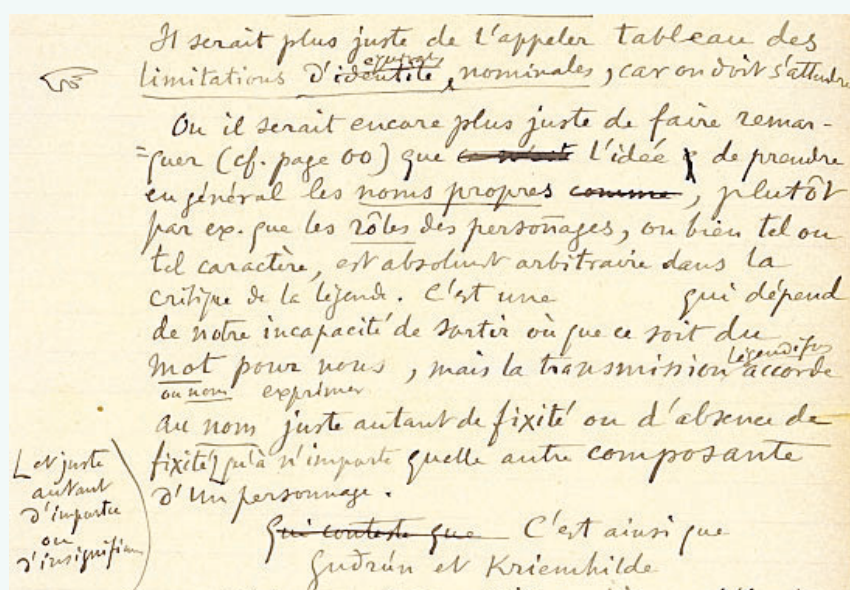 Il serait plus juste de l'appeler tableau des
limitations d'identité, nominales, car on doit s'attendre
Ou il serait encore plus juste de faire remar-
=quer (cf. page 00) que l'idée de prendre
en général les noms propres comme, plutôt
par ex. que les rôles des personnages, ou bien tel ou
tel caractère, est absolunt arbitraire dans la
critique de la légende. C'est une qui dépend
de notre incapacité de sortir où que ce soit du
légendaire
mot pour nous, mais la transmission accorde
ou nom exprimer
au nom juste autant de fixité ou d'absence de
fixité [qu'à n'importe quelle autre composante
d'un personnage.
[et juste
autant
d'importce
ou
d'insignifian
Qui conteste que C'est ainsi que
Guðrún et Kriemhilde